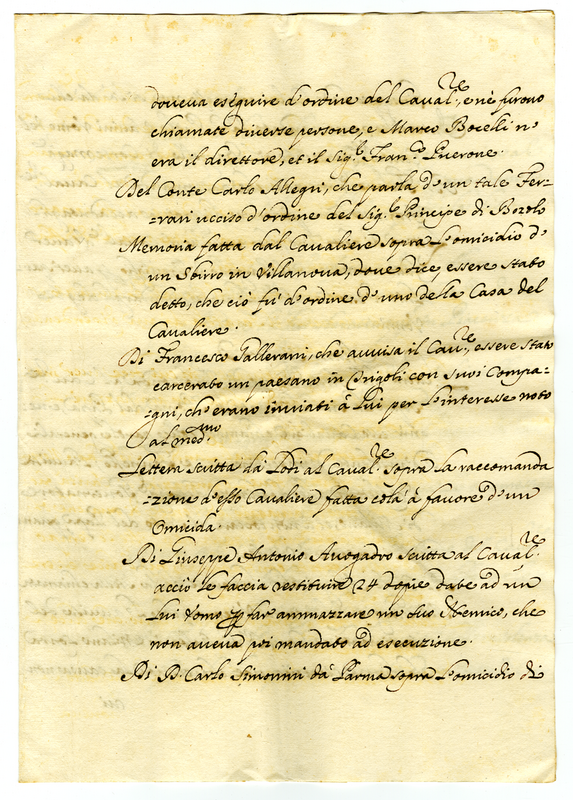 doveva eseguire d'ordine del Caval.re, e né furono
chiamate diverse persone, e Marco Bocelli n'
era il direttore, et il Sig.r Fran.co Puerone.
Del Conte Carlo Allegri, che parla d'un tale Fer-
-rari ucciso d'ordine del Sig.r Principe di Bozolo
Memoria fatta dal Cavaliere sopra l'omicidio d'
un Sbirro in Villanova, dove dice, essere stato
detto, che ciò fú d'ordine d'uno della Casa del
Cavaliere.
Di Francesco Pallerani, che avvisa il Cav.re, essere stato
carcerato un paesano in Orzigoli con suoi Compa-
-gni, ch'erano inviati à Lui per l'interesse noto
al med.mo
Lettera scritta dà Lodi al Caval.re sopra la raccomanda
-zione d'esso Cavaliere fatta colà à favore d'un
Omicida.
Di Giuseppe Antonio Avogadro scritta al Caval.re
acciò le faccia restituire 24 dopie date ad un
Lui Uomo p far ammazzare un suo Nemico, che
non aveva poi mandato ad esecuzione.
Di D. Carlo Simonini dà Parma sopra l'omicidio di